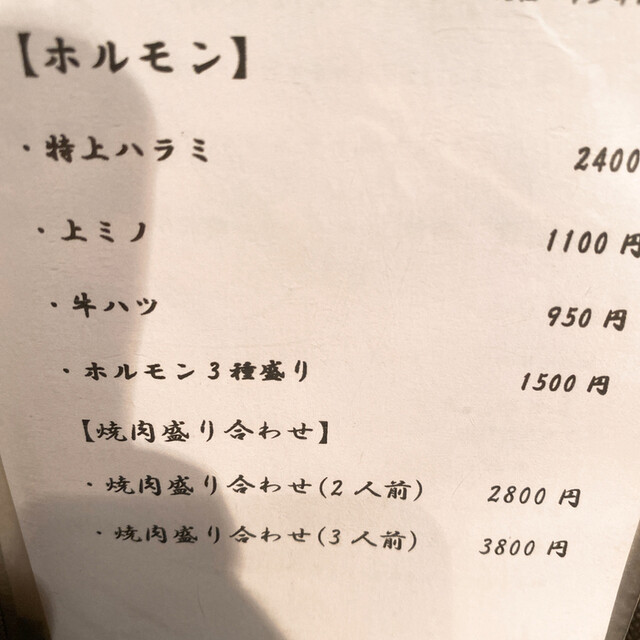 【ホルモン】
・特上ハラミ 2400
・上ミノ 1100 円
・牛ハツ 950 円
・ホルモン3種盛り 1500 円
【焼肉盛り合わせ】
・焼肉盛り合わせ(2人前) 2800 円
・焼肉盛り合わせ(3人前) 3800 円